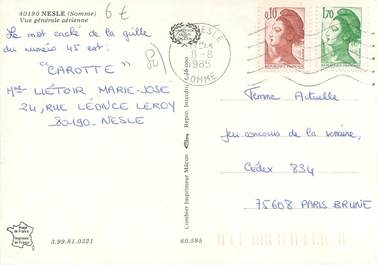 80190 NESLE (Somme)
Vue générale aérienne
6 €
Le mot caché de la grille
du numéro 45 est:
"CAROTTE"
Mme LIÉTOIR MARIE-JOSE
24, RUE LÉONCE LEROY
80190 - NESLE
NESLE
8-8
1985
SOMME
0,10
1,70
Femme Actuelle
Jeu concours de la semaine,
Cedex 834
75608 PARIS BRUNE
Combier Imprimeur Mâcon
Repro. Interdite
Image de France
Imprimée en France
3.99.81.0321
80.585